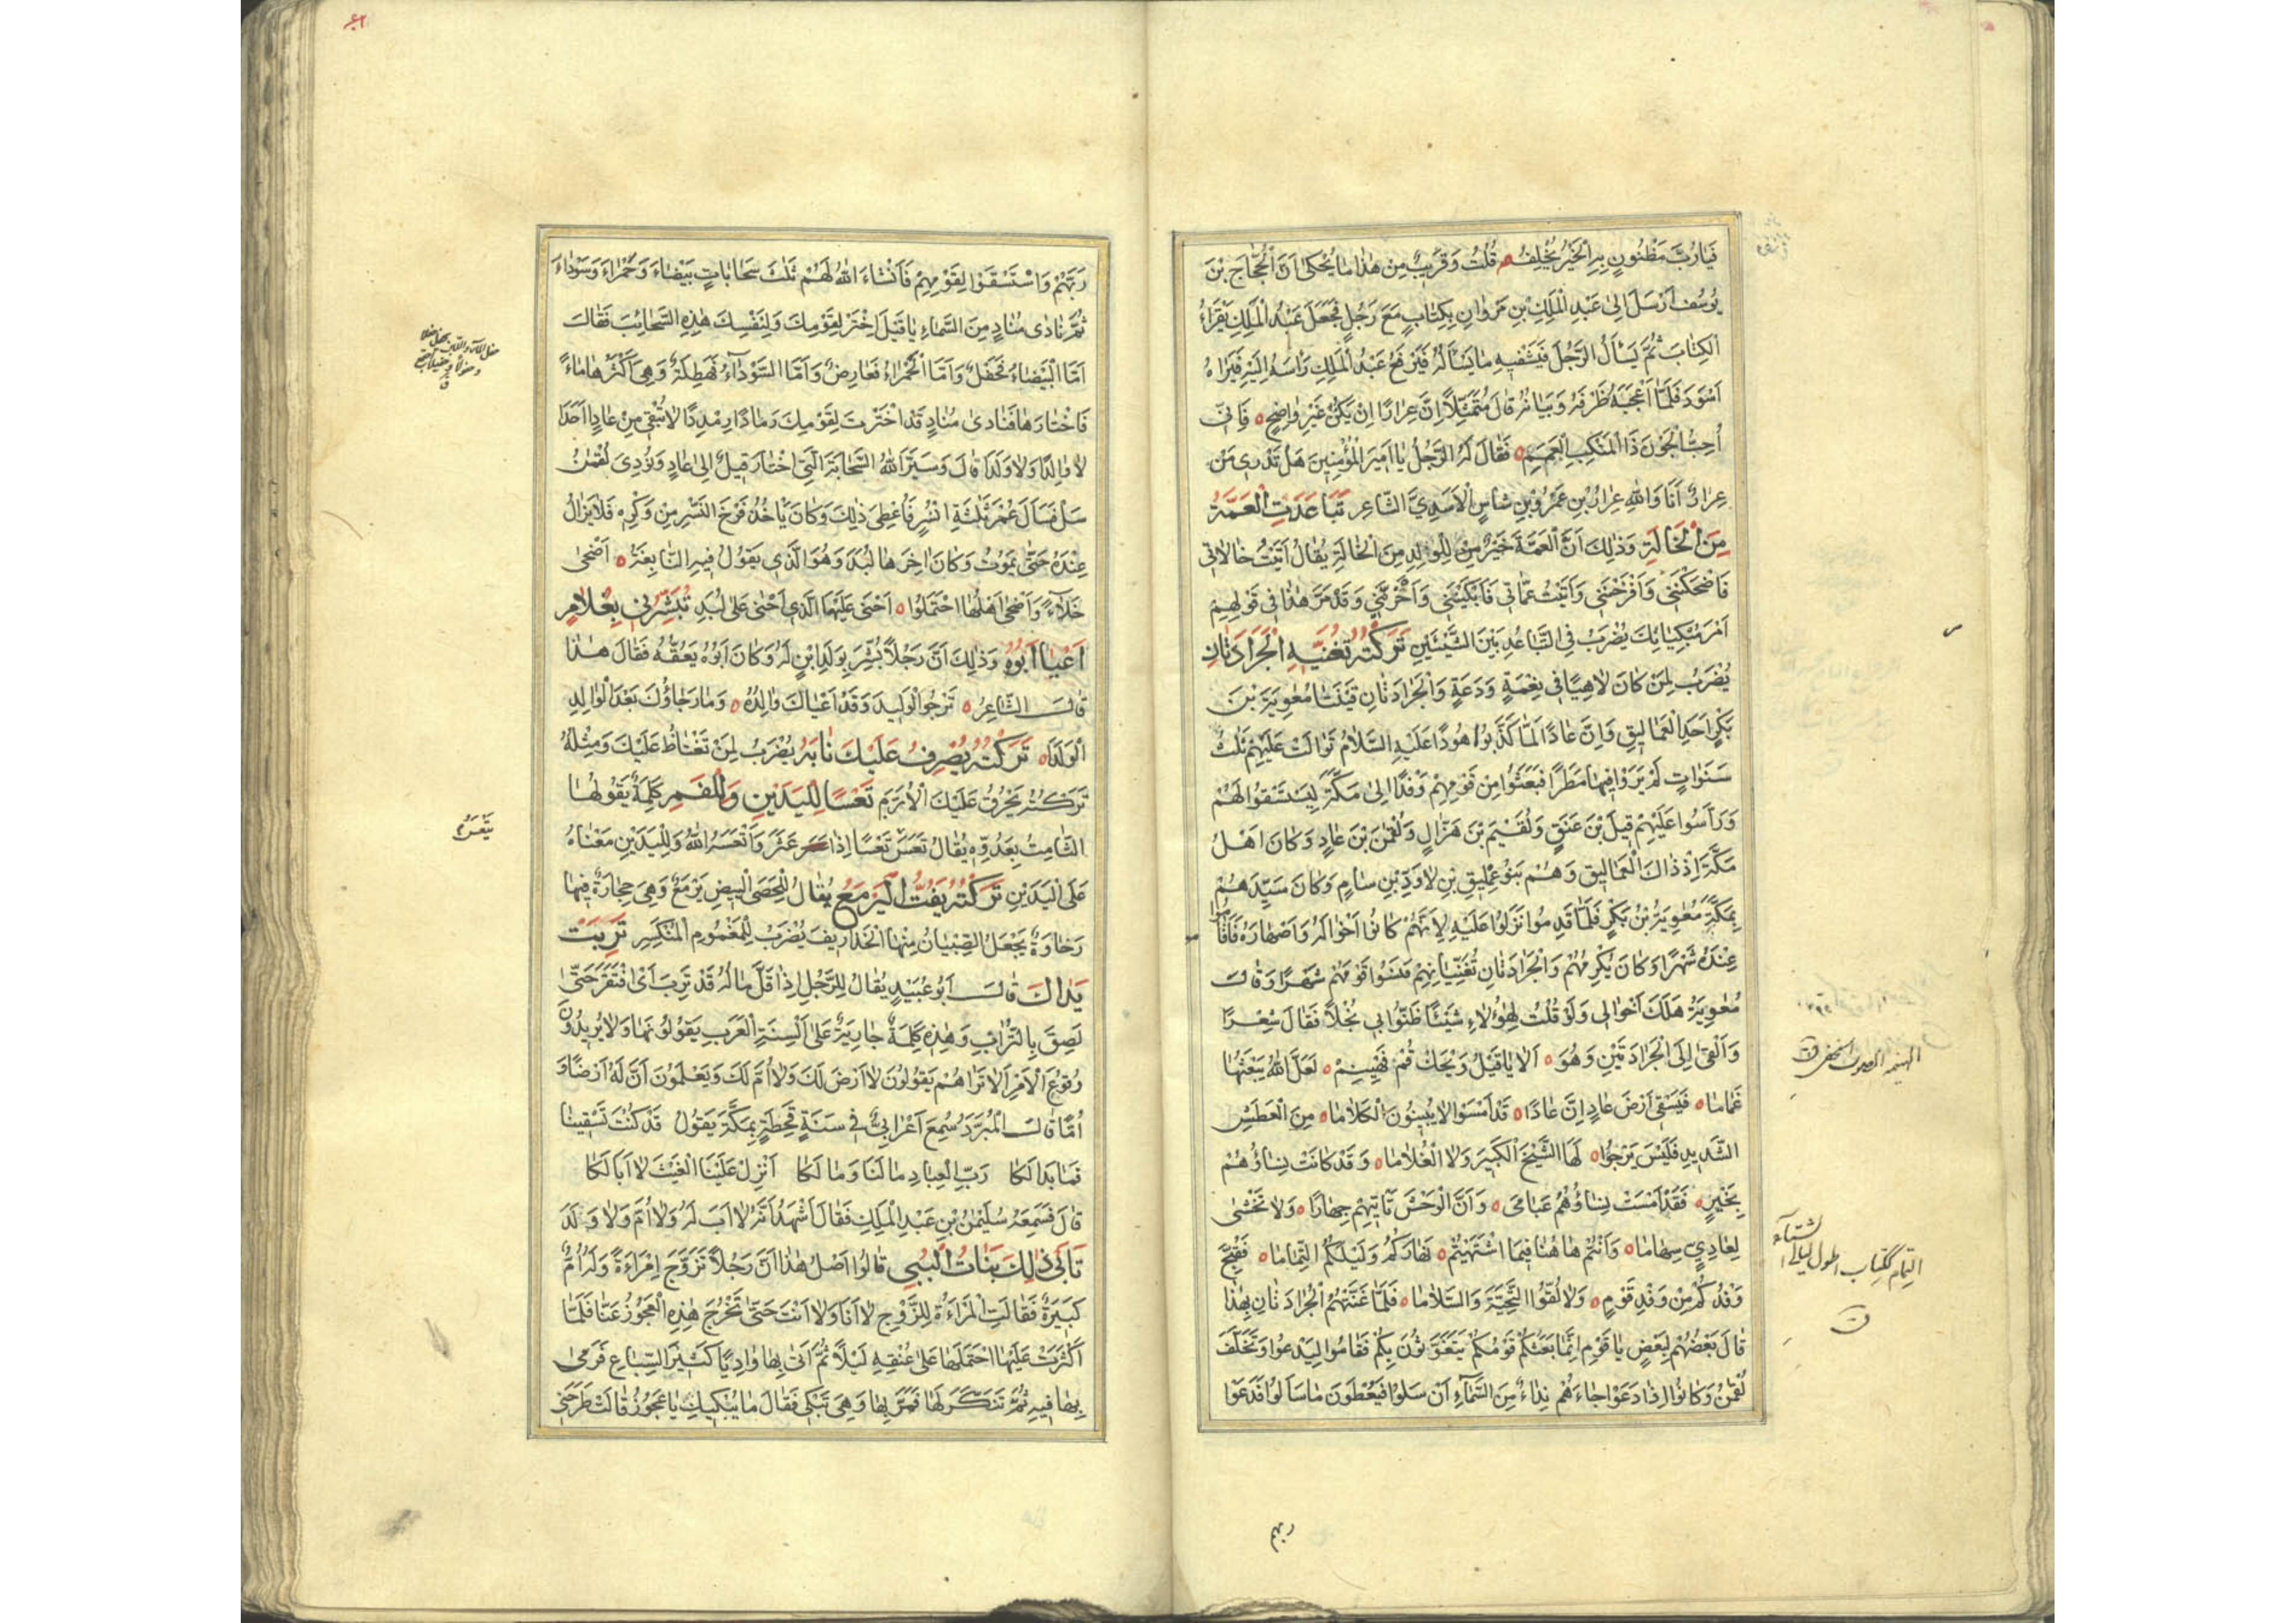 فَيَارُبَّ مَظْنُونٍ بِهِ الْخَيْرُ يُخْلِفُ قُلْتُ وَقَرِيبٌ مِنْ هٰذَا مَا يُحْكٰى اَنَّ الْحَجَّاجَ بْنَ
يُوسُفَ اَرْسَلَ اِلٰى عَبْدِ الْمَلِكِ بْنِ مَرْوَانَ بِكِتَابٍ مَعَ رَجُلٍ فَجَعَلَ عَبْدُ الْمَلِكِ يَقْرَاُ
الْكِتَابَ ثُمَّ يَسْاَلُ الرَّجُلَ فَيَشْفِيهِ مَا يَسْاَلُهُ فَيَرْفَعُ عَبْدُ الْمَلِكِ رَاْسَهُ اِلَيْهِ فَيَرَاهُ
اَسْوَدَ فَلَمَّا اَعْجَبَهُ ظَرْفُهُ وَبَيَانُهُ قَالَ مُتَمَثِّلًا اِنَّ عِرَارًا اِنْ يَكُنْ غَيْرَ وَاضِحٍ فَاِنِّي
اُحِبُّ الْجَوْنَ ذَا الْمَنْكِبِ الْعَمَمِ فَقَالَ لَهُ الرَّجُلُ يَا اَمِيرَ الْمُؤْمِنِينَ هَلْ تَدْرِي مَنْ
عِرَارٌ اَنَا وَاللّٰهِ عِرَارُ بْنُ عَمْرِو بْنِ شَاسٍ الْاَسَدِيِّ الشَّاعِرِ تَبَاعَدَتِ الْعَمَّةُ
مِنَ الْخَالَةِ وَذٰلِكَ اَنَّ الْعَمَّةَ خَيْرٌ لِلْوَلَدِ مِنَ الْخَالَةِ يُقَالُ اَتَيْتُ خَالَاتِي
فَاَضْحَكْنَنِي وَاَفْرَحْنَنِي وَاَتَيْتُ عَمَّاتِي فَاَبْكَيْنَنِي وَاَحْزَنَّنِي وَقَدْ مَرَّ هٰذَا فِي قَوْلِهِمْ
اَمْرَ مُبْكِيَاتِكَ يُضْرَبُ فِي التَّبَاعُدِ بَيْنَ الشَّيْئَيْنِ تَرَكْتُهُ تُغَنِّيهِ الْجَرَادَتَانِ
يُضْرَبُ لِمَنْ كَانَ لَاهِيًا فِي نِعْمَةٍ وَدَعَةٍ وَالْجَرَادَتَانِ قَيْنَتَا مُعٰوِيَةَ بْنِ
بَكْرٍ اَحَدِ الْعَمَالِيقِ وَاِنَّ عَادًا لَمَّا كَذَّبُوا هُودًا عَلَيْهِ السَّلَامُ تَوَالَتْ عَلَيْهِمْ ثَلٰثُ
سَنَوَاتٍ لَمْ يَرَوْا فِيهَا مَطَرًا فَبَعَثُوا مِنْ قَوْمِهِمْ وَفْدًا اِلٰى مَكَّةَ لِيَسْتَسْقُوا لَهُمْ
وَرَاَّسُوا عَلَيْهِمْ قَيْلَ بْنَ عَنَقٍ وَلُقَيْمَ بْنَ هَزَّالٍ وَلُقْمٰنَ بْنَ عَادٍ وَكَانَ اَهْلُ
مَكَّةَ اِذْ ذَاكَ الْعَمَالِيقَ وَهُمْ بَنُو عِمْلِيقِ بْنِ لَاوَذِ بْنِ سَامٍ وَكَانَ سَيِّدَهُمْ
بِمَكَّةَ مُعٰوِيَةُ بْنُ بَكْرٍ فَلَمَّا قَدِمُوا نَزَلُوا عَلَيْهِ لِاَنَّهُمْ كَانُوا اَخْوَالَهُ وَاَصْهَارَهُ فَاَقَامُوا
عِنْدَهُ شَهْرًا وَكَانَ يُكْرِمُهُمْ وَالْجَرَادَتَانِ تُغَنِّيَانِهِمْ فَنَسُوا قَوْمَهُمْ شَهْرًا وَقَالَ
مُعٰوِيَةُ هَلَكَ اَخْوَالِي وَلَوْ قُلْتُ لِهٰؤُلَاءِ شَيْئًا ظَنُّوا بِي بُخْلًا فَقَالَ شِعْرًا
وَاَلْقٰى اِلَى الْجَرَادَتَيْنِ وَهُوَ اَلَا يَا قَيْلُ وَيْحَكَ قُمْ فَهَيْنِمْ لَعَلَّ اللّٰهَ يَبْعَثُهَا
غَمَامَا فَيَسْقِيَ اَرْضَ عَادٍ اِنَّ عَادًا قَدْ اَمْسَوْا لَا يُبِينُونَ الْكَلَامَا مِنَ الْعَطَشِ
الشَّدِيدِ فَلَيْسَ يَرْجُوا لَهَا الشَّيْخَ الْكَبِيرَ وَلَا الْغُلَامَا وَقَدْ كَانَتْ نِسَاؤُهُمْ
بِخَيْرٍ فَقَدْ اَمْسَتْ نِسَاؤُهُمُ عَيَامَى وَاَنَّ الْوَحْشَ تَاْتِيهِمْ جِهَارًا وَلَا تَخْشٰى
لِعَادِيٍّ سِهَامَا وَاَنْتُمْ هَاهُنَا فِيمَا اشْتَهَيْتُمْ نَهَارَكُمُ وَلَيْلَكُمُ التِّمَامَا فَقُبِّحَ
وَفْدُكُمْ مِنْ وَفْدِ قَوْمٍ وَلَا لُقُّوا التَّحِيَّةَ وَالسَّلَامَا فَلَمَّا غَنَّتْهُمُ الْجَرَادَتَانِ بِهٰذَا
قَالَ بَعْضُهُمْ لِبَعْضٍ يَا قَوْمِ اِنَّمَا بَعَثَكُمْ قَوْمُكُمْ يَتَغَوَّثُونَ بِكُمْ فَقَامُوا لِيَدْعُوا وَتَخَلَّفَ
لُقْمٰنُ وَكَانُوا اِذَا دَعَوْا جَاءَهُمْ نِدَاءٌ مِنَ السَّمَاءِ اَنْ سَلُوا فَيُعْطَوْنَ مَا سَاَلُوا فَدَعَوْا
الهينمة الصوت الخفى
التمام ككتاب اطول ليالى الشتاء
ربهم
رَبَّهُمْ وَاسْتَسْقَوْا لِقَوْمِهِمْ فَاَنْشَاَ اللّٰهُ لَهُمْ ثَلٰثَ سَحَابَاتٍ بَيْضَاءَ وَحَمْرَاءَ وَسَوْدَاءَ
ثُمَّ نَادٰى مُنَادٍ مِنَ السَّمَاءِ يَا قَيْلُ اخْتَرْ لِقَوْمِكَ وَلِنَفْسِكَ هٰذِهِ السَّحَائِبَ فَقَالَ
اَمَّا الْبَيْضَاءُ فَجَفْلٌ وَاَمَّا الْحَمْرَاءُ فَعَارِضٌ وَاَمَّا السَّوْدَاءُ فَهَطِلَةٌ وَهِيَ اَكْثَرُهَا مَاءً
فَاخْتَارَهَا فَنَادٰى مُنَادٍ قَدِ اخْتَرْتَ لِقَوْمِكَ رَمَادًا رِمْدِدًا لَا تُبْقِي مِنْ عَادٍ اَحَدًا
لَا وَالِدًا وَلَا وَلَدًا قَالَ وَسَيَّرَ اللّٰهُ السَّحَابَةَ الَّتِي اخْتَارَ قَيْلٌ اِلٰى عَادٍ وَنُودِيَ لُقْمٰنُ
سَلْ فَسَاَلَ عُمْرَ ثَلٰثَةِ اَنْسُرٍ فَاُعْطِيَ ذٰلِكَ وَكَانَ يَاْخُذُ فَرْخَ النَّسْرِ مِنْ وَكْرِهِ فَلَا يَزَالُ
عِنْدَهُ حَتّٰى يَمُوتَ وَكَانَ اٰخِرَهَا لُبَدُ وَهُوَ الَّذِي يَقُولُ فِيهِ النَّابِغَةُ اَضْحٰى
خَلَاءً وَاَضْحٰى اَهْلُهَا احْتَمَلُوا اَخْنٰى عَلَيْهَا الَّذِي اَخْنٰى عَلٰى لُبَدِ تُبَشِّرُنِي بِغُلَامٍ
اَعْيَا اَبُوهُ وَذٰلِكَ اَنَّ رَجُلًا بُشِّرَ بِوَلَدِ ابْنٍ لَهُ وَكَانَ اَبُوهُ يَعُقُّهُ فَقَالَ هٰذَا
قَالَ الشَّاعِرُ تَرْجُو الْوَلِيدَ وَقَدْ اَعْيَاكَ وَالِدُهُ وَمَا رَجَاؤُكَ بَعْدَ الْوَالِدِ
الْوَلَدَا تَرَكْتُهُ يُصْرِفُ عَلَيْكَ نَابَهُ يُضْرَبُ لِمَنْ تَغْتَاظُ عَلَيْكَ وَمِثْلُهُ
تَرَكْتُهُ يَحْرُقُ عَلَيْكَ الْاُرَّمَ تَعْسًا لِلْيَدَيْنِ وَلِلْفَمِ كَلِمَةٌ يَقُولُهَا
الشَّامِتُ بِعَدُوِّهِ يُقَالُ تَعَسَ تَعْسًا اِذَا عَثَرَ وَاَتْعَسَهُ اللّٰهُ وَلِلْيَدَيْنِ مَعْنَاهُ
عَلَى الْيَدَيْنِ تَرَكْتُهُ يَفُتُّ الْيَرْمَعَ يُقَالُ لِلْحَصَى الْبِيضِ يَرْمَعٌ وَهِيَ حِجَارَةٌ فِيهَا
رَخَاوَةٌ يَجْعَلُ الصِّبْيَانُ مِنْهَا الْخَذَارِيفَ يُضْرَبُ لِلْمَغْمُومِ الْمُنْكَسِرِ تَرِبَتْ
يَدَاكَ قَالَ اَبُو عُبَيْدٍ يُقَالُ لِلرَّجُلِ اِذَا قَلَّ مَالُهُ قَدْ تَرِبَ اَيْ افْتَقَرَ حَتّٰى
لَصِقَ بِالتُّرَابِ وَهٰذِهِ كَلِمَةٌ جَارِيَةٌ عَلٰى اَلْسِنَةِ الْعَرَبِ يَقُولُونَهَا وَلَا يُرِيدُونَ
وُقُوعَ الْاَمْرِ اَلَا تَرَاهُمْ يَقُولُونَ لَا اَرْضَ لَكَ وَلَا اُمَّ لَكَ وَيَعْلَمُونَ اَنَّ لَهُ اَرْضًا وَ
اُمًّا قَالَ الْمُبَرَّدُ سُمِعَ اَعْرَابِيٌّ فِي سَنَةٍ قَحِطَةٍ بِمَكَّةَ يَقُولُ قَدْ كُنْتَ تَسْقِينَا
فَمَا بَدَا لَكَا رَبَّ الْعِبَادِ مَا لَنَا وَمَا لَكَا اَنْزِلْ عَلَيْنَا الْغَيْثَ لَا اَبَا لَكَا
قَالَ فَسَمِعَهُ سُلَيْمٰنُ بْنُ عَبْدِ الْمَلِكِ فَقَالَ اَشْهَدُ اَنَّهُ لَا اَبَ لَهُ وَلَا اُمَّ وَلَا وَلَدَ
تَاْبٰى ذٰلِكَ بَنَاتُ اَلْبُبِي قَالُوا اَصْلُ هٰذَا اَنَّ رَجُلًا تَزَوَّجَ اِمْرَاَةً وَلَهُ اُمٌّ
كَبِيرَةٌ فَقَالَتِ الْمَرْاَةُ لِلزَّوْجِ لَا اَنَا وَلَا اَنْتَ حَتّٰى تَخْرُجَ هٰذِهِ الْعَجُوزُ عَنَّا فَلَمَّا
اَكْثَرَتْ عَلَيْهَا احْتَمَلَهَا عَلٰى عُنُقِهِ لَيْلًا ثُمَّ اَتٰى بِهَا وَادِيًا كَثِيرَ السِّبَاعِ فَرَمٰى
بِهَا فِيهِ ثُمَّ تَنَكَّرَ لَهَا فَمَرَّ بِهَا وَهِيَ تَبْكِي فَقَالَ مَا يُبْكِيكِ يَا عَجُوزُ قَالَتْ طَرَحَنِي